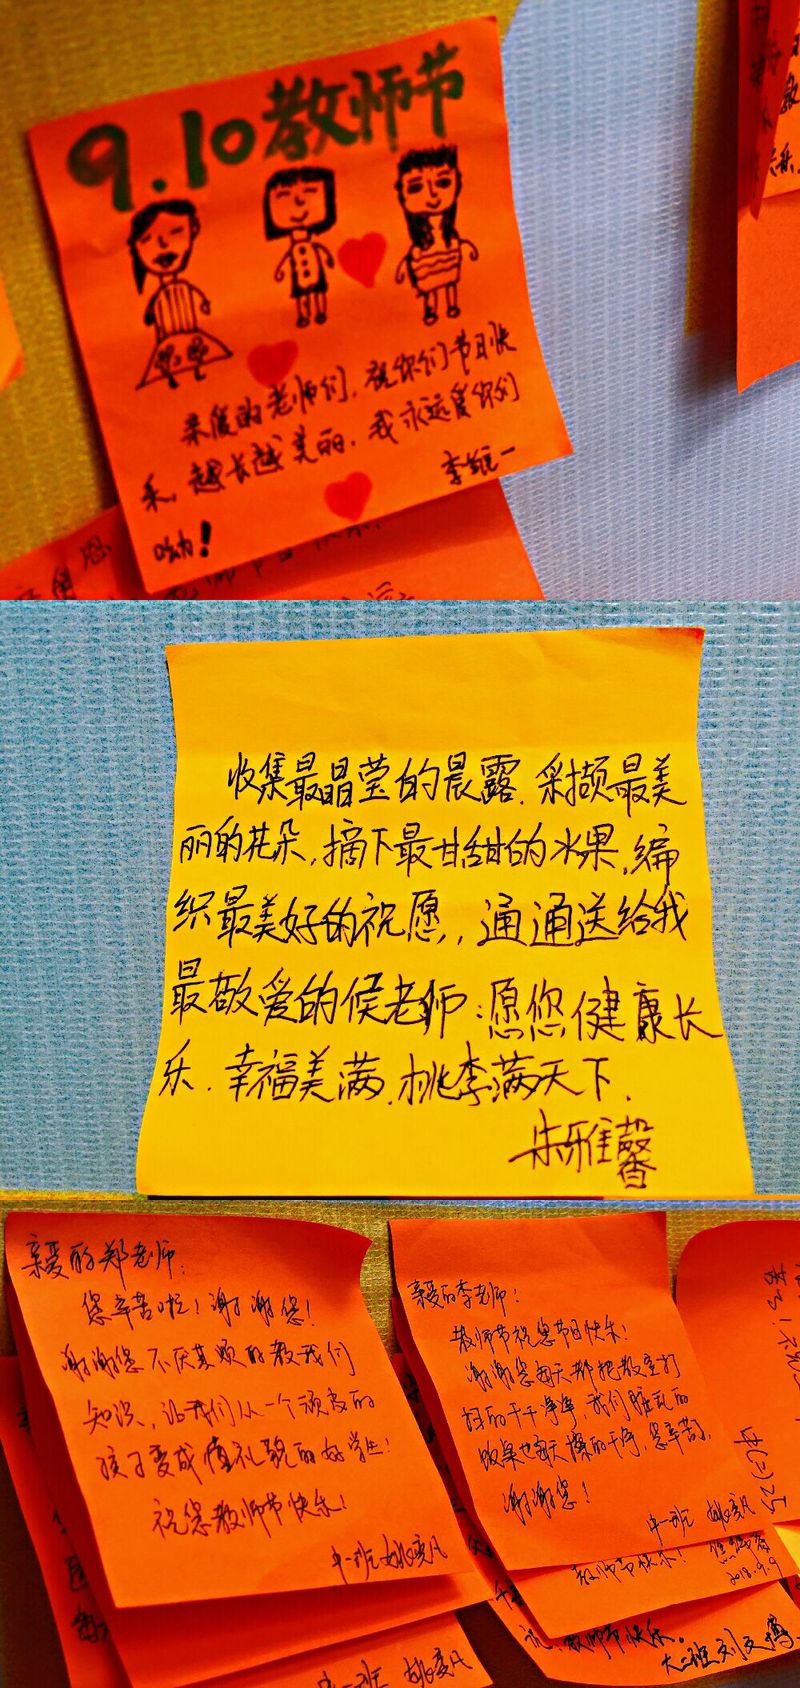 9.10教师节
亲爱的老师们，祝你们节日快
乐，越长越美丽，我永远爱你们
哟！
李维一
收集最晶莹的晨露，采撷最美
丽的花朵，摘下最甘甜的水果，编
织最美好的祝愿，，通通送给我
最敬爱的侯老师：愿您健康长
乐．幸福美满，桃李满天下．
朱雅馨
亲爱的郑老师：
您辛苦啦！谢谢您！
谢谢您不厌其烦的教我们
知识，让我们从一个顽皮的
孩子变成懂礼貌的好学生！
祝您教师节快乐！
中一班 姚奕凡
亲爱的李老师！
教师节祝您节日快乐！
谢谢您每天都把教室打
扫的干干净净 我们脏乱的
也每天擦的干净，您辛苦了，
谢谢您！
中一班 姚奕凡
教师节快乐！
2018.9.9
教师节快乐。
大二班刘文博
中一班 姚奕凡
中(二)25